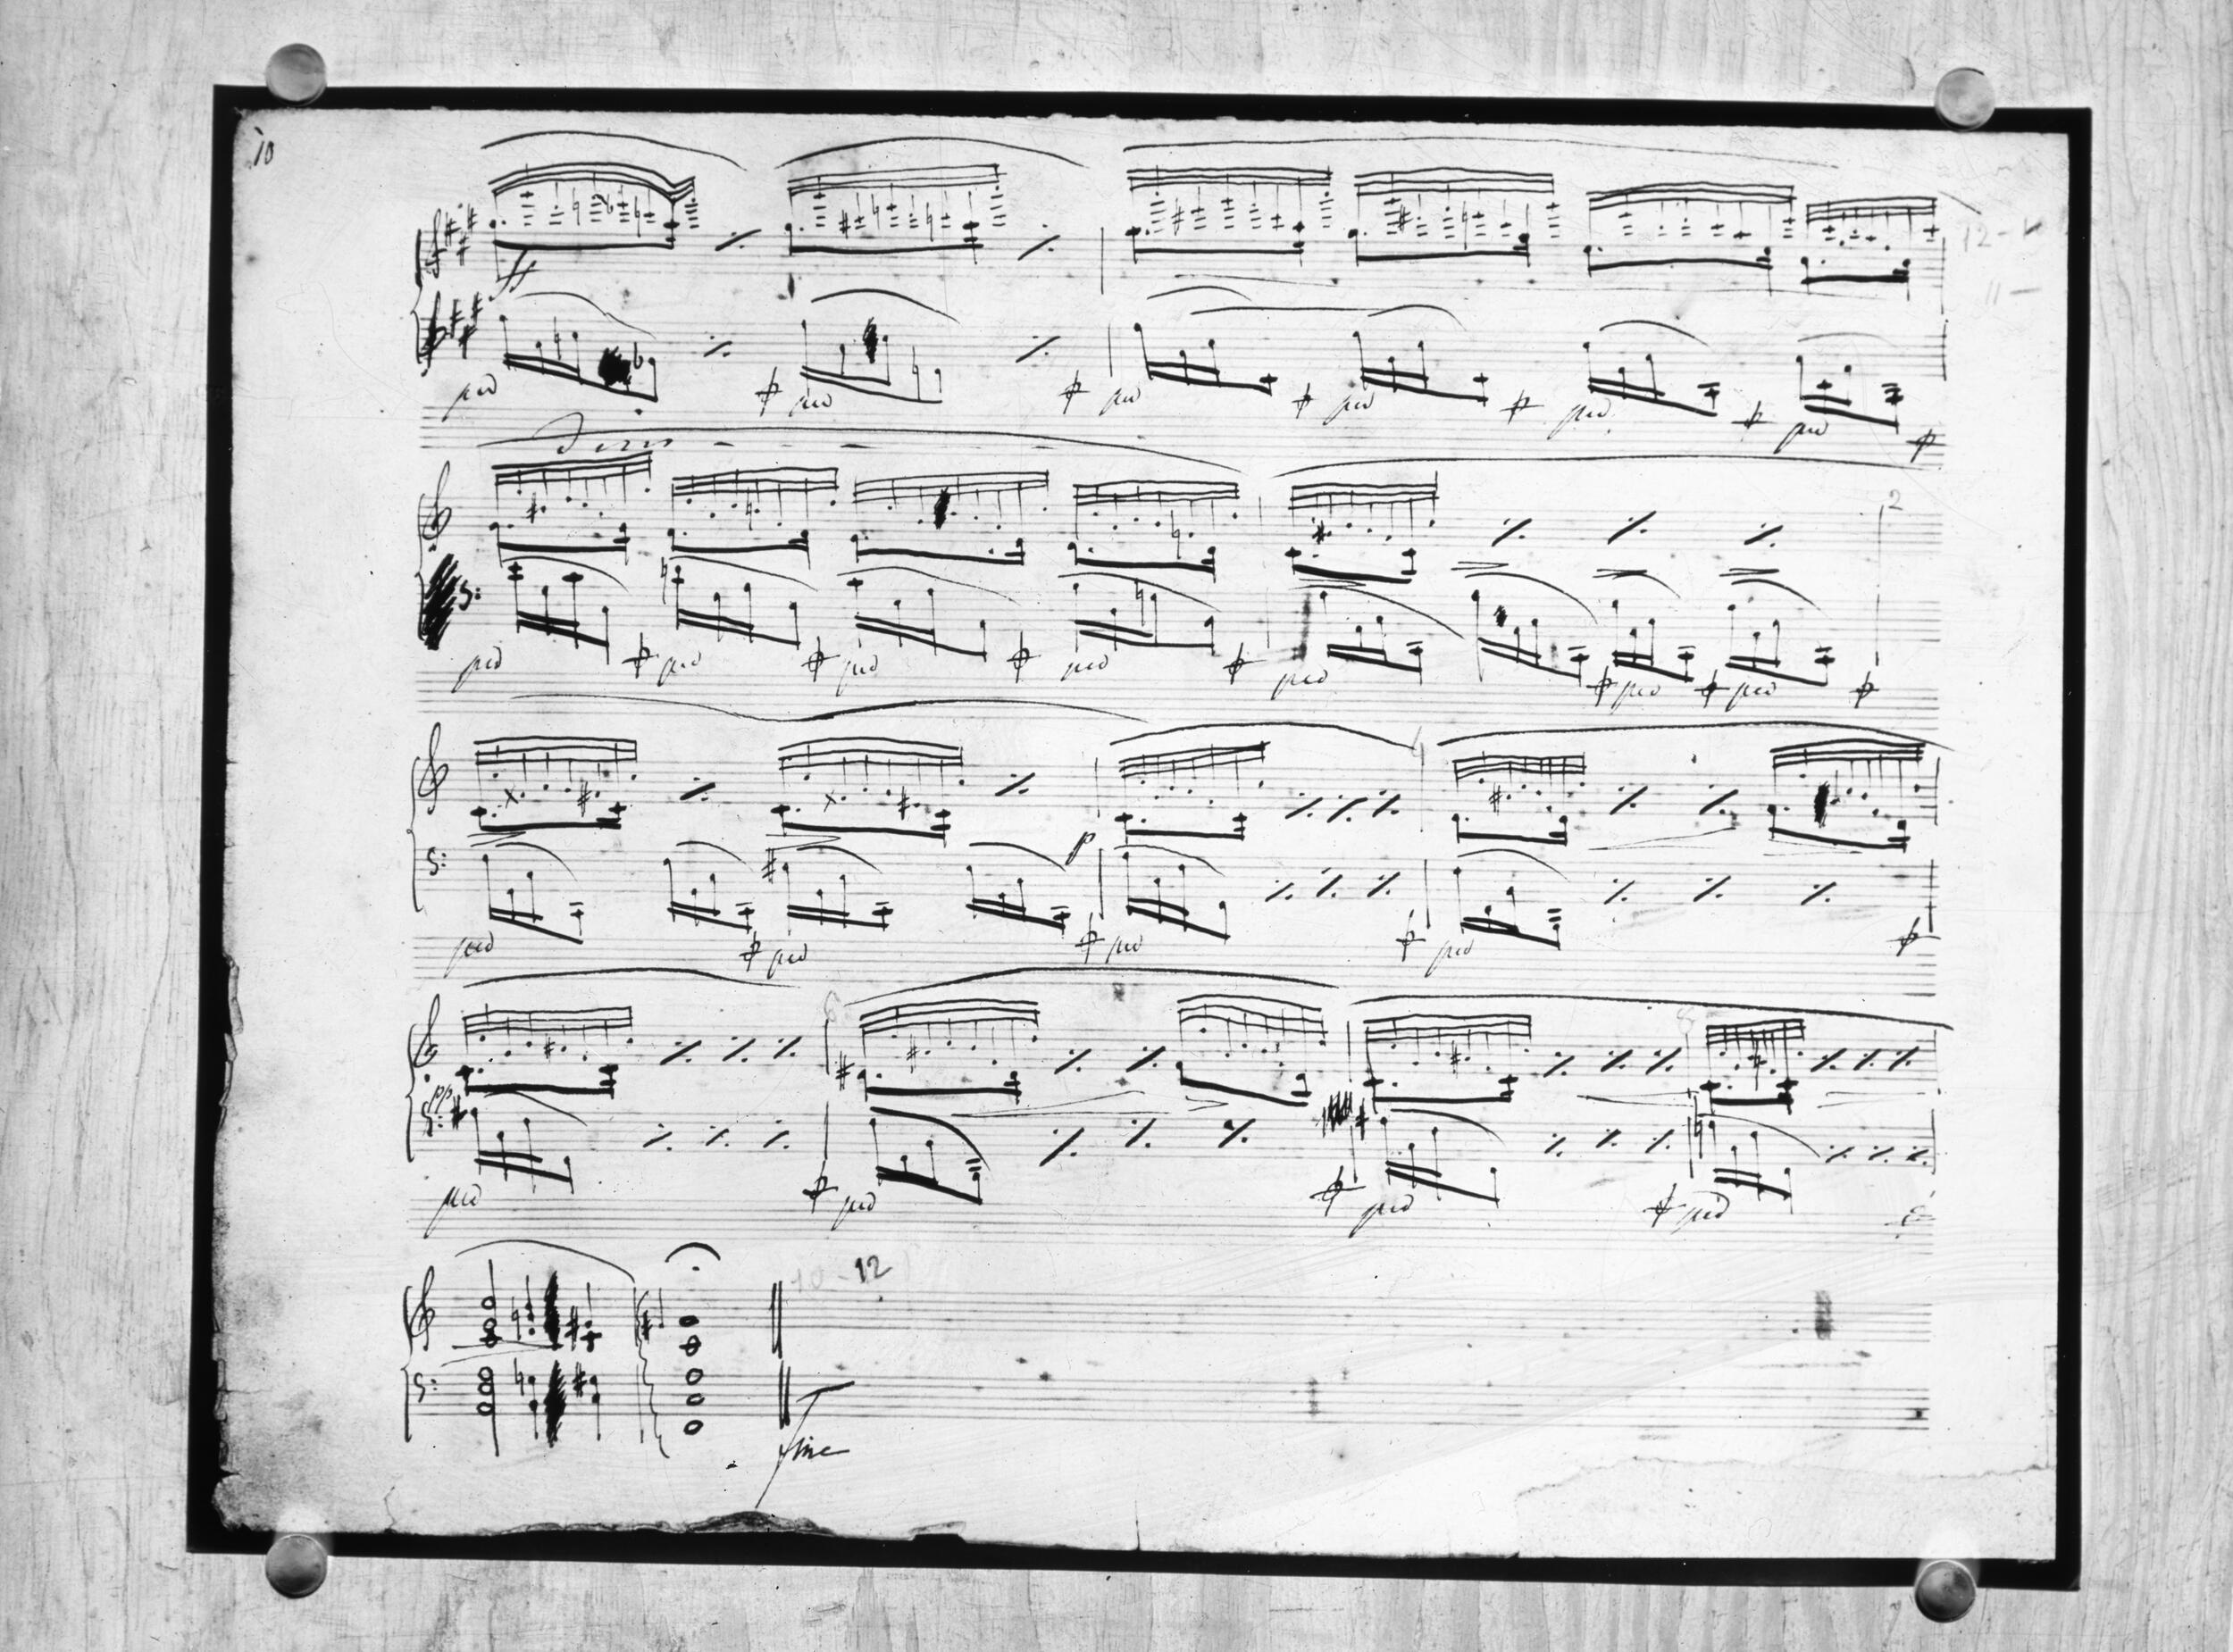 10
12-
11 -
ff
ped ped ped ped ped ped
Dim - - -
2
ped ped ped ped ped ped ped
4
p
ped ped ped ped
6 8
pp
ped ped ped ped
10 - 12
fine